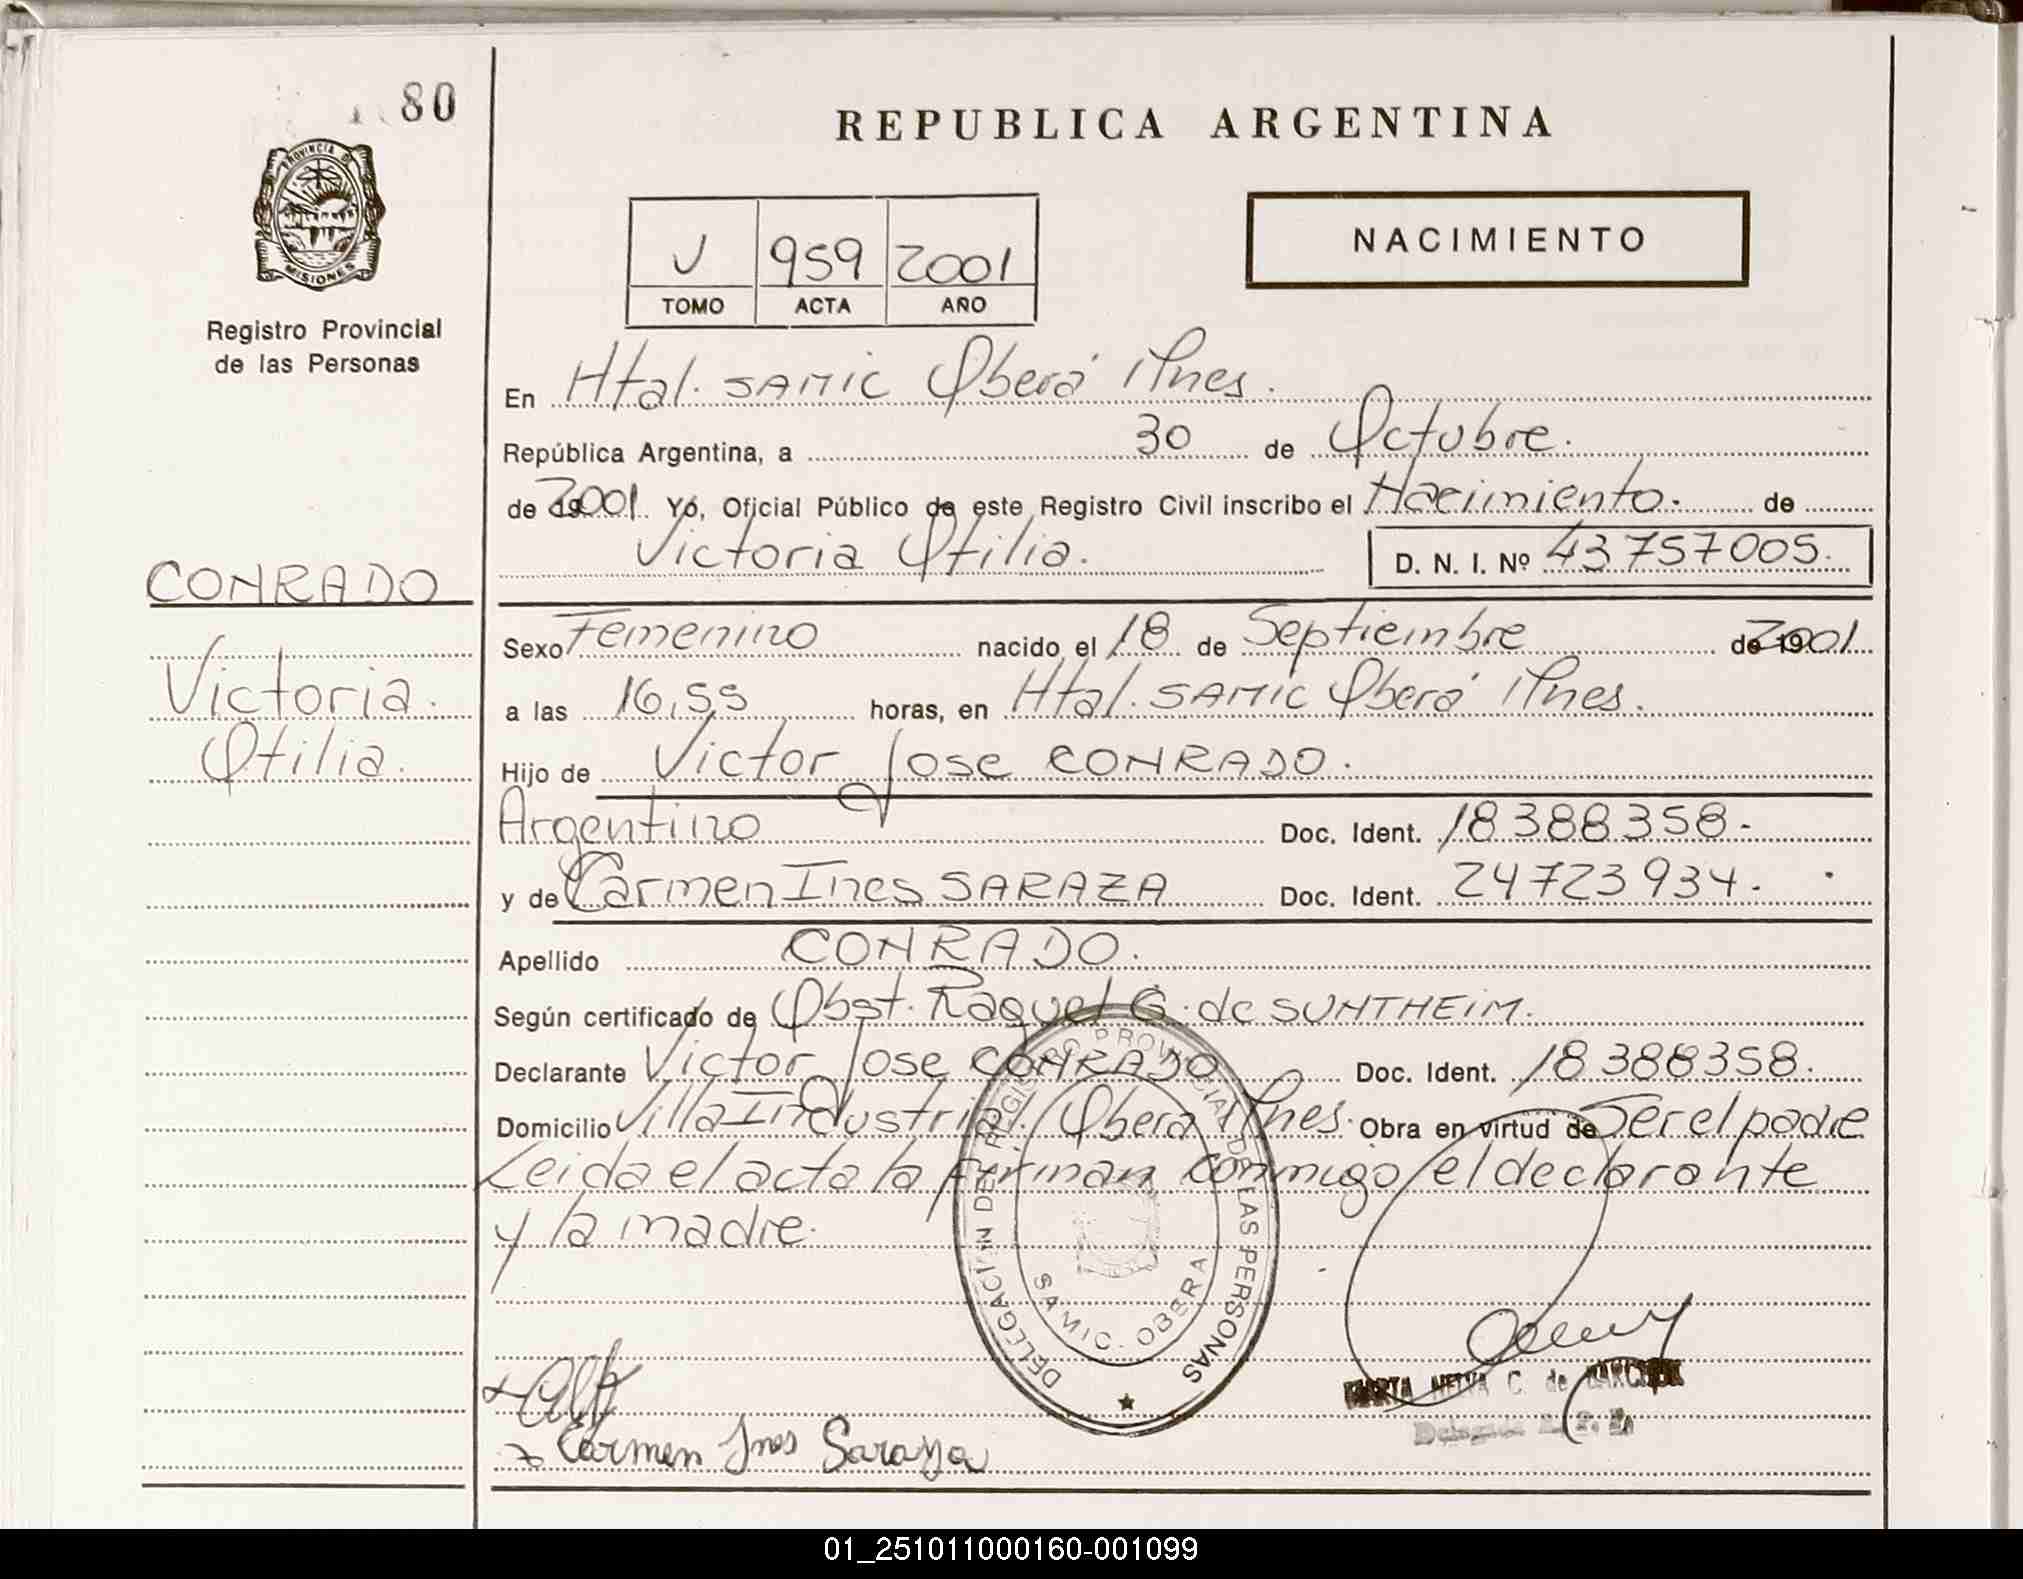 80
PROVINCIA DE
MISIONES
Registro Provincial
de las Personas
CONRADO
Victoria.
Otilia.
REPUBLICA ARGENTINA
V 959 2001
TOMO ACTA AÑO
NACIMIENTO
En Htal. SAMIC Oberá Mnes.
República Argentina, a 30 de Octubre.
de 2001. Yo, Oficial Público de este Registro Civil inscribo el Nacimiento. de
Victoria Otilia. D. N. I. Nº 43757005.
Sexo Femenino nacido el 18 de Septiembre de 2001
a las 16,55 horas, en Htal. SAMIC Oberá Mnes.
Hijo de Victor Jose CONRADO.
Argentino Doc. Ident. 18388358.
y de Carmen Ines SARAZA Doc. Ident. 24723934.
Apellido CONRADO.
Según certificado de Obst. Raquel G. de SUNTHEIM.
Declarante Victor Jose CONRADO Doc. Ident. 18388358.
Domicilio Villa Industrial. Oberá Mnes. Obra en virtud de Ser el padre
Leida el acta la firman conmigo el declarante
y la madre.
DELEGACION DEL REGISTRO PROVINCIAL DE LAS PERSONAS
SAMIC. OBERA
MARTA C. de
Carmen Ines Saraza
01_251011000160-001099